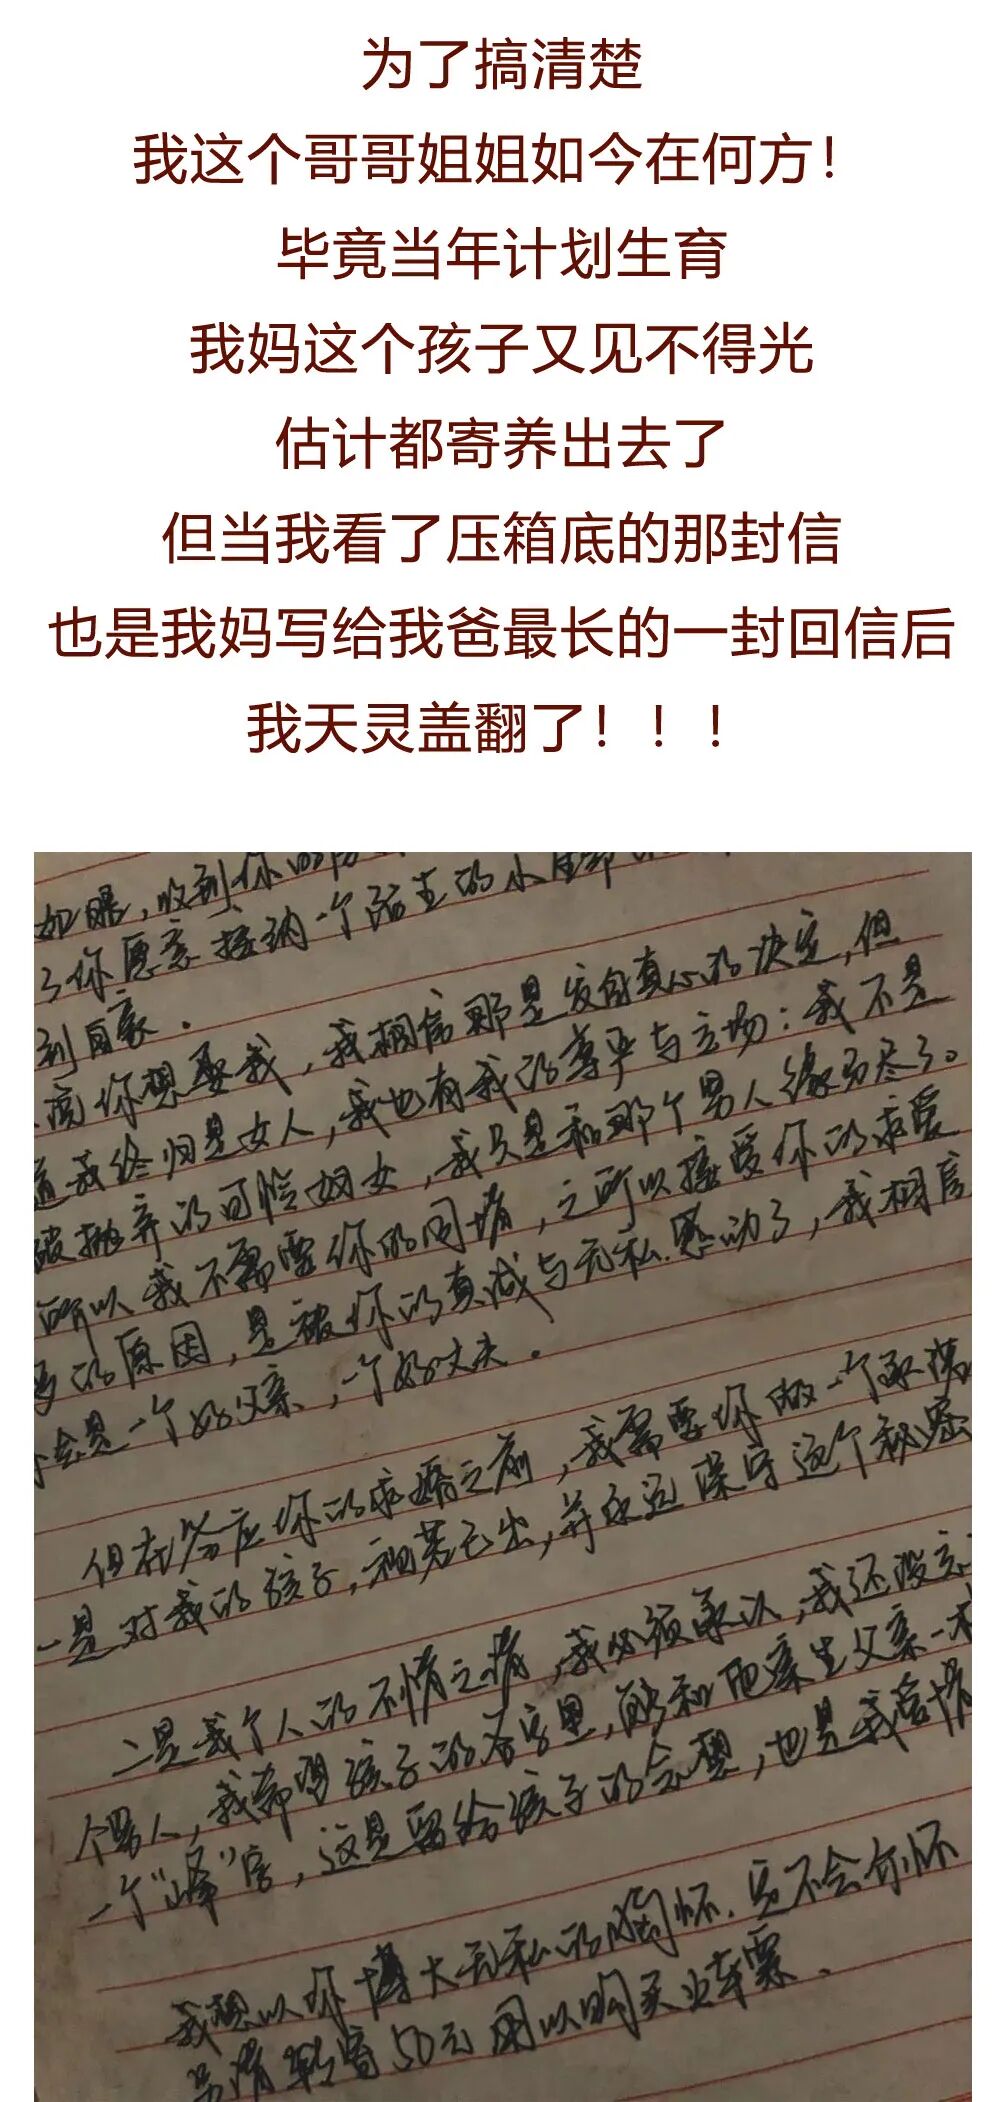 为了搞清楚
我这个哥哥姐姐如今在何方！
毕竟当年计划生育
我妈这个孩子又见不得光
估计都寄养出去了
但当我看了压箱底的那封信
也是我妈写给我爸最长的一封回信后
我天灵盖翻了！！！
如曙，收到你的
了你愿意接纳一个陌生的小生命
到自豪．
你想娶我，我相信那是发自真心的决定，但
我终归是女人，我也有我的尊严与立场：我不是
被抛弃的可怜妇女，我只是和那个男人缘分尽了。
所以我不需要你的同情，之所以接受你的求爱
的原因，是被你的真诚与无私感动了，我相信
会是一个好父亲，一个好丈夫．
但在答应你的求婚之前，我需要你做一个承诺
一是对我的孩子，视若己出，并永远保守这个秘密
二是我个人的不情之请，我必须承认，我还没忘
个男人，我希望孩子的名字里，能和他亲生父亲一样
一个“峰”字，这是留给孩子的念想，也是我旧情
我想以你博大无私的胸怀．
另请转寄50元用以购买火车票．